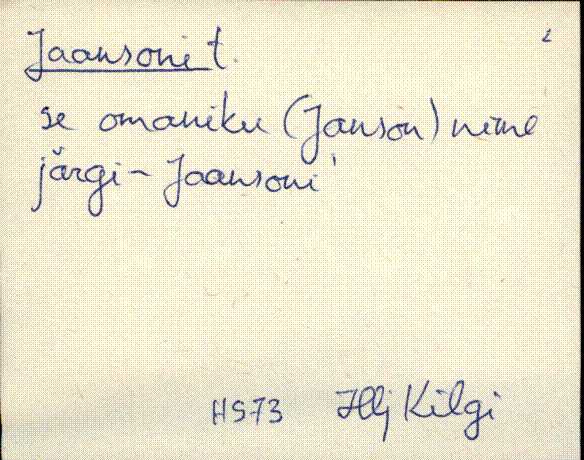 Jaansoni t.
se omaniku (Janson) nime
järgi - Jaansoni'
HS73 Hlj Kilgi